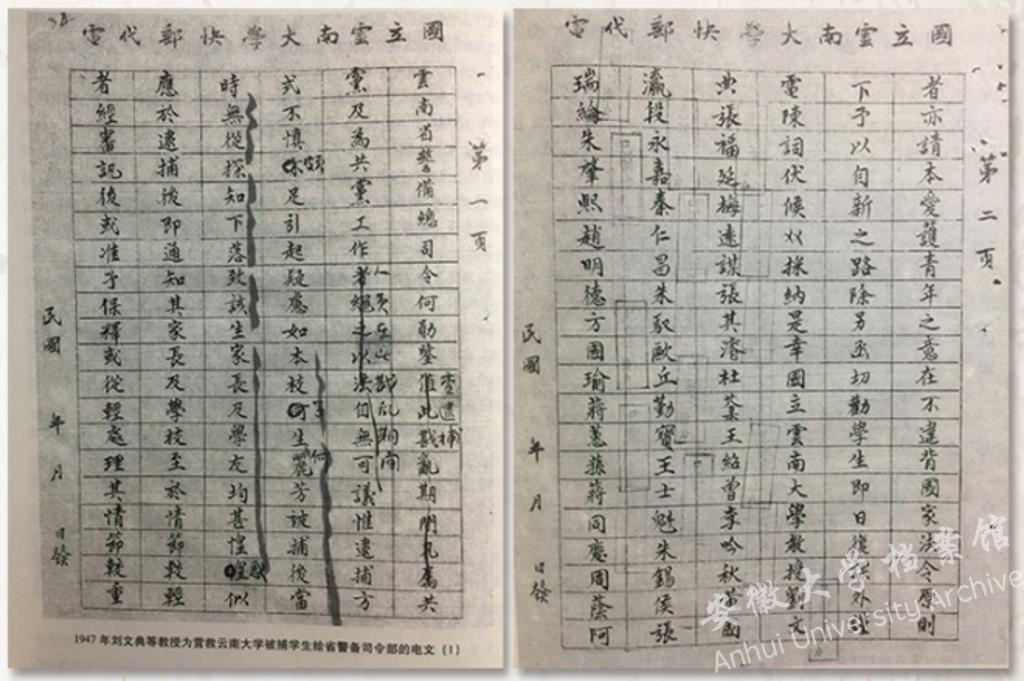 國立雲南大學快郵代電
第一頁
雲南省警備總司令何勛鑒催此戡亂期間凡屬共
查逮捕
黨及為共黨工作者繩之以法自無可議惟逮捕方
人員在此戡亂期間
式不慎頗足引起疑慮如本校何生麗芳被捕後當
時無從探知下落致該生家長及學友均甚惶似
應於逮捕後即通知其家長及學校至於情節較輕
者經審訊後或准予保釋或從輕處理其情節較重
民國 年 月 日發
1947年刘文典等教授为营救云南大学被捕学生给省警备司令部的电文（1）
國立雲南大學快郵代電
第二頁
者亦請本愛護青年之意在不違背國家法令原則
下予以自新之路除另函切勸學生即日復課外謹
電陳詞伏候以採納是幸國立雲南大學教授劉文
典張福延梅遠謀張其濬杜棻王紹曾李吟秋苗國
瀛段永嘉秦仁昌朱馭歐丘勤寶王士魁朱錫侯張
瑞綸朱肇熙趙明德方國瑜蔣蕙蓀蔣同慶周蔭阿
民國 年 月 日發
安徽大学档案馆
Anhui University Archive